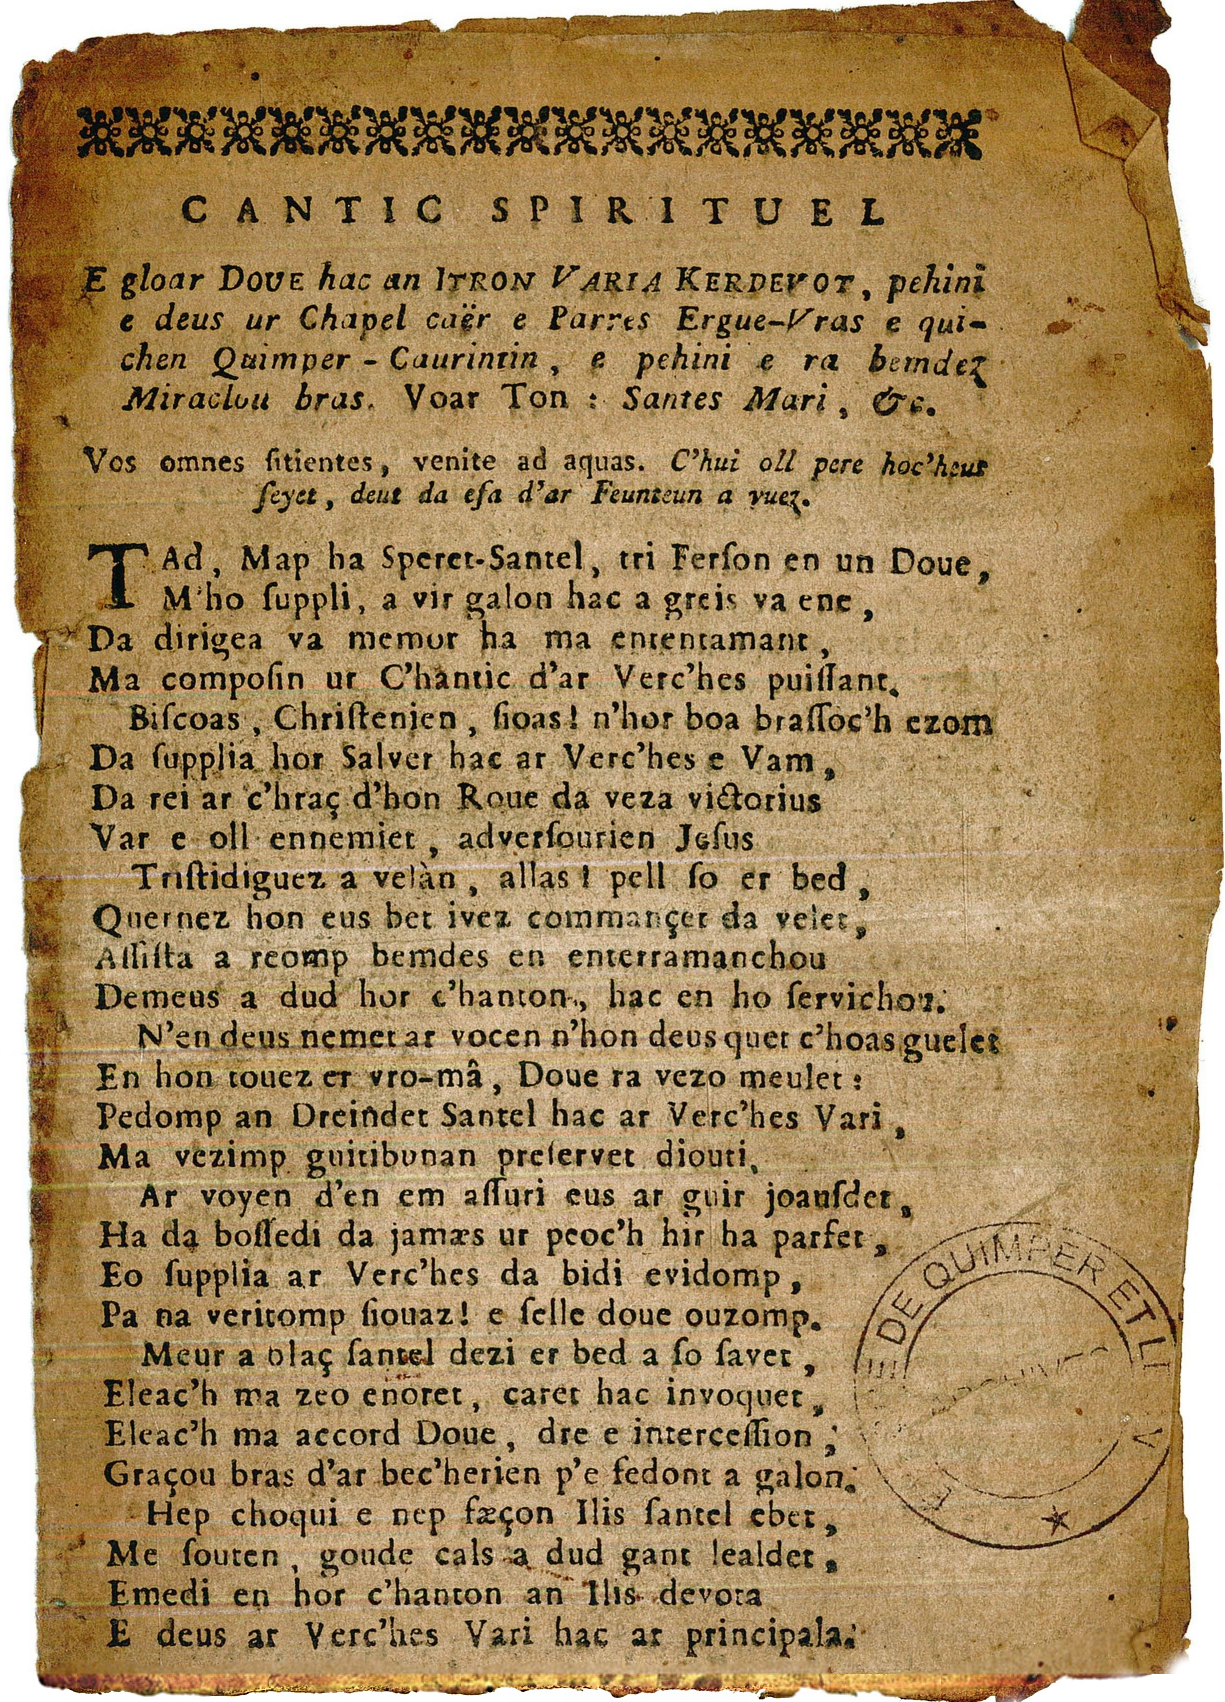 CANTIC SPIRITUEL
E gloar DOUE hac an ITRON VARIA KERDEVOT, pehini
e deus ur Chapel caër e Parres Ergue-Vras e qui-
chen Quimper - Caurintin, e pehini e ra bemdez
Miraclou bras. Voar Ton : Santes Mari, &c.
Vos omnes ſitientes, venite ad aquas. C'hui oll pere hoc'heus
ſeyet, deut da eſa d'ar Feunteun a vuez.
TAd, Map ha Speret-Santel, tri Ferſon en un Doue,
M'ho ſuppli, a vir galon hac a greis va ene,
Da dirigea va memor ha ma ententamant,
Ma compoſin ur C'hantic d'ar Verc'hes puiſſant.
Biſcoas, Chriſtenien, ſioas! n'hor boa braſſoc'h ezom
Da ſupplia hor Salver hac ar Verc'hes e Vam,
Da rei ar c'hraç d'hon Roue da veza victorius
Var e oll ennemiet, adverſourien Jeſus
Triſtidiguez a velàn, allas! pell ſo er bed,
Quernez hon eus bet ivez commançet da velet,
Aſſiſta a reomp bemdes en enterramanchou
Demeus a dud hor c'hanton, hac en ho ſervichou.
N'en deus nemet ar vocen n'hon deus quet c'hoas guelet
En hon touez er vro-mâ, Doue ra vezo meulet :
Pedomp an Dreindet Santel hac ar Verc'hes Vari,
Ma vezimp guitibunan preſervet diouti.
Ar voyen d'en em aſſuri eus ar guir joauſdet,
Ha da boſſedi da jamæs ur peoc'h hir ha parfet,
Eo ſupplia ar Verc'hes da bidi evidomp,
Pa na veritomp ſiouaz! e ſelle doue ouzomp.
Meur a blaç ſantel dezi er bed a ſo ſavet,
Eleac'h ma zeo enoret, caret hac invoquet,
Eleac'h ma accord Doue, dre e interceſſion,
Graçou bras d'ar bec'herien p'e fedont a galon.
Hep choqui e nep fæçon Ilis ſantel ebet,
Me ſouten, goude cals a dud gant lealdet,
Emedi en hor c'hanton an Ilis devota
E deus ar Verc'hes Vari hac ar principala.
DE QUIMPER ET
ARCHIVES